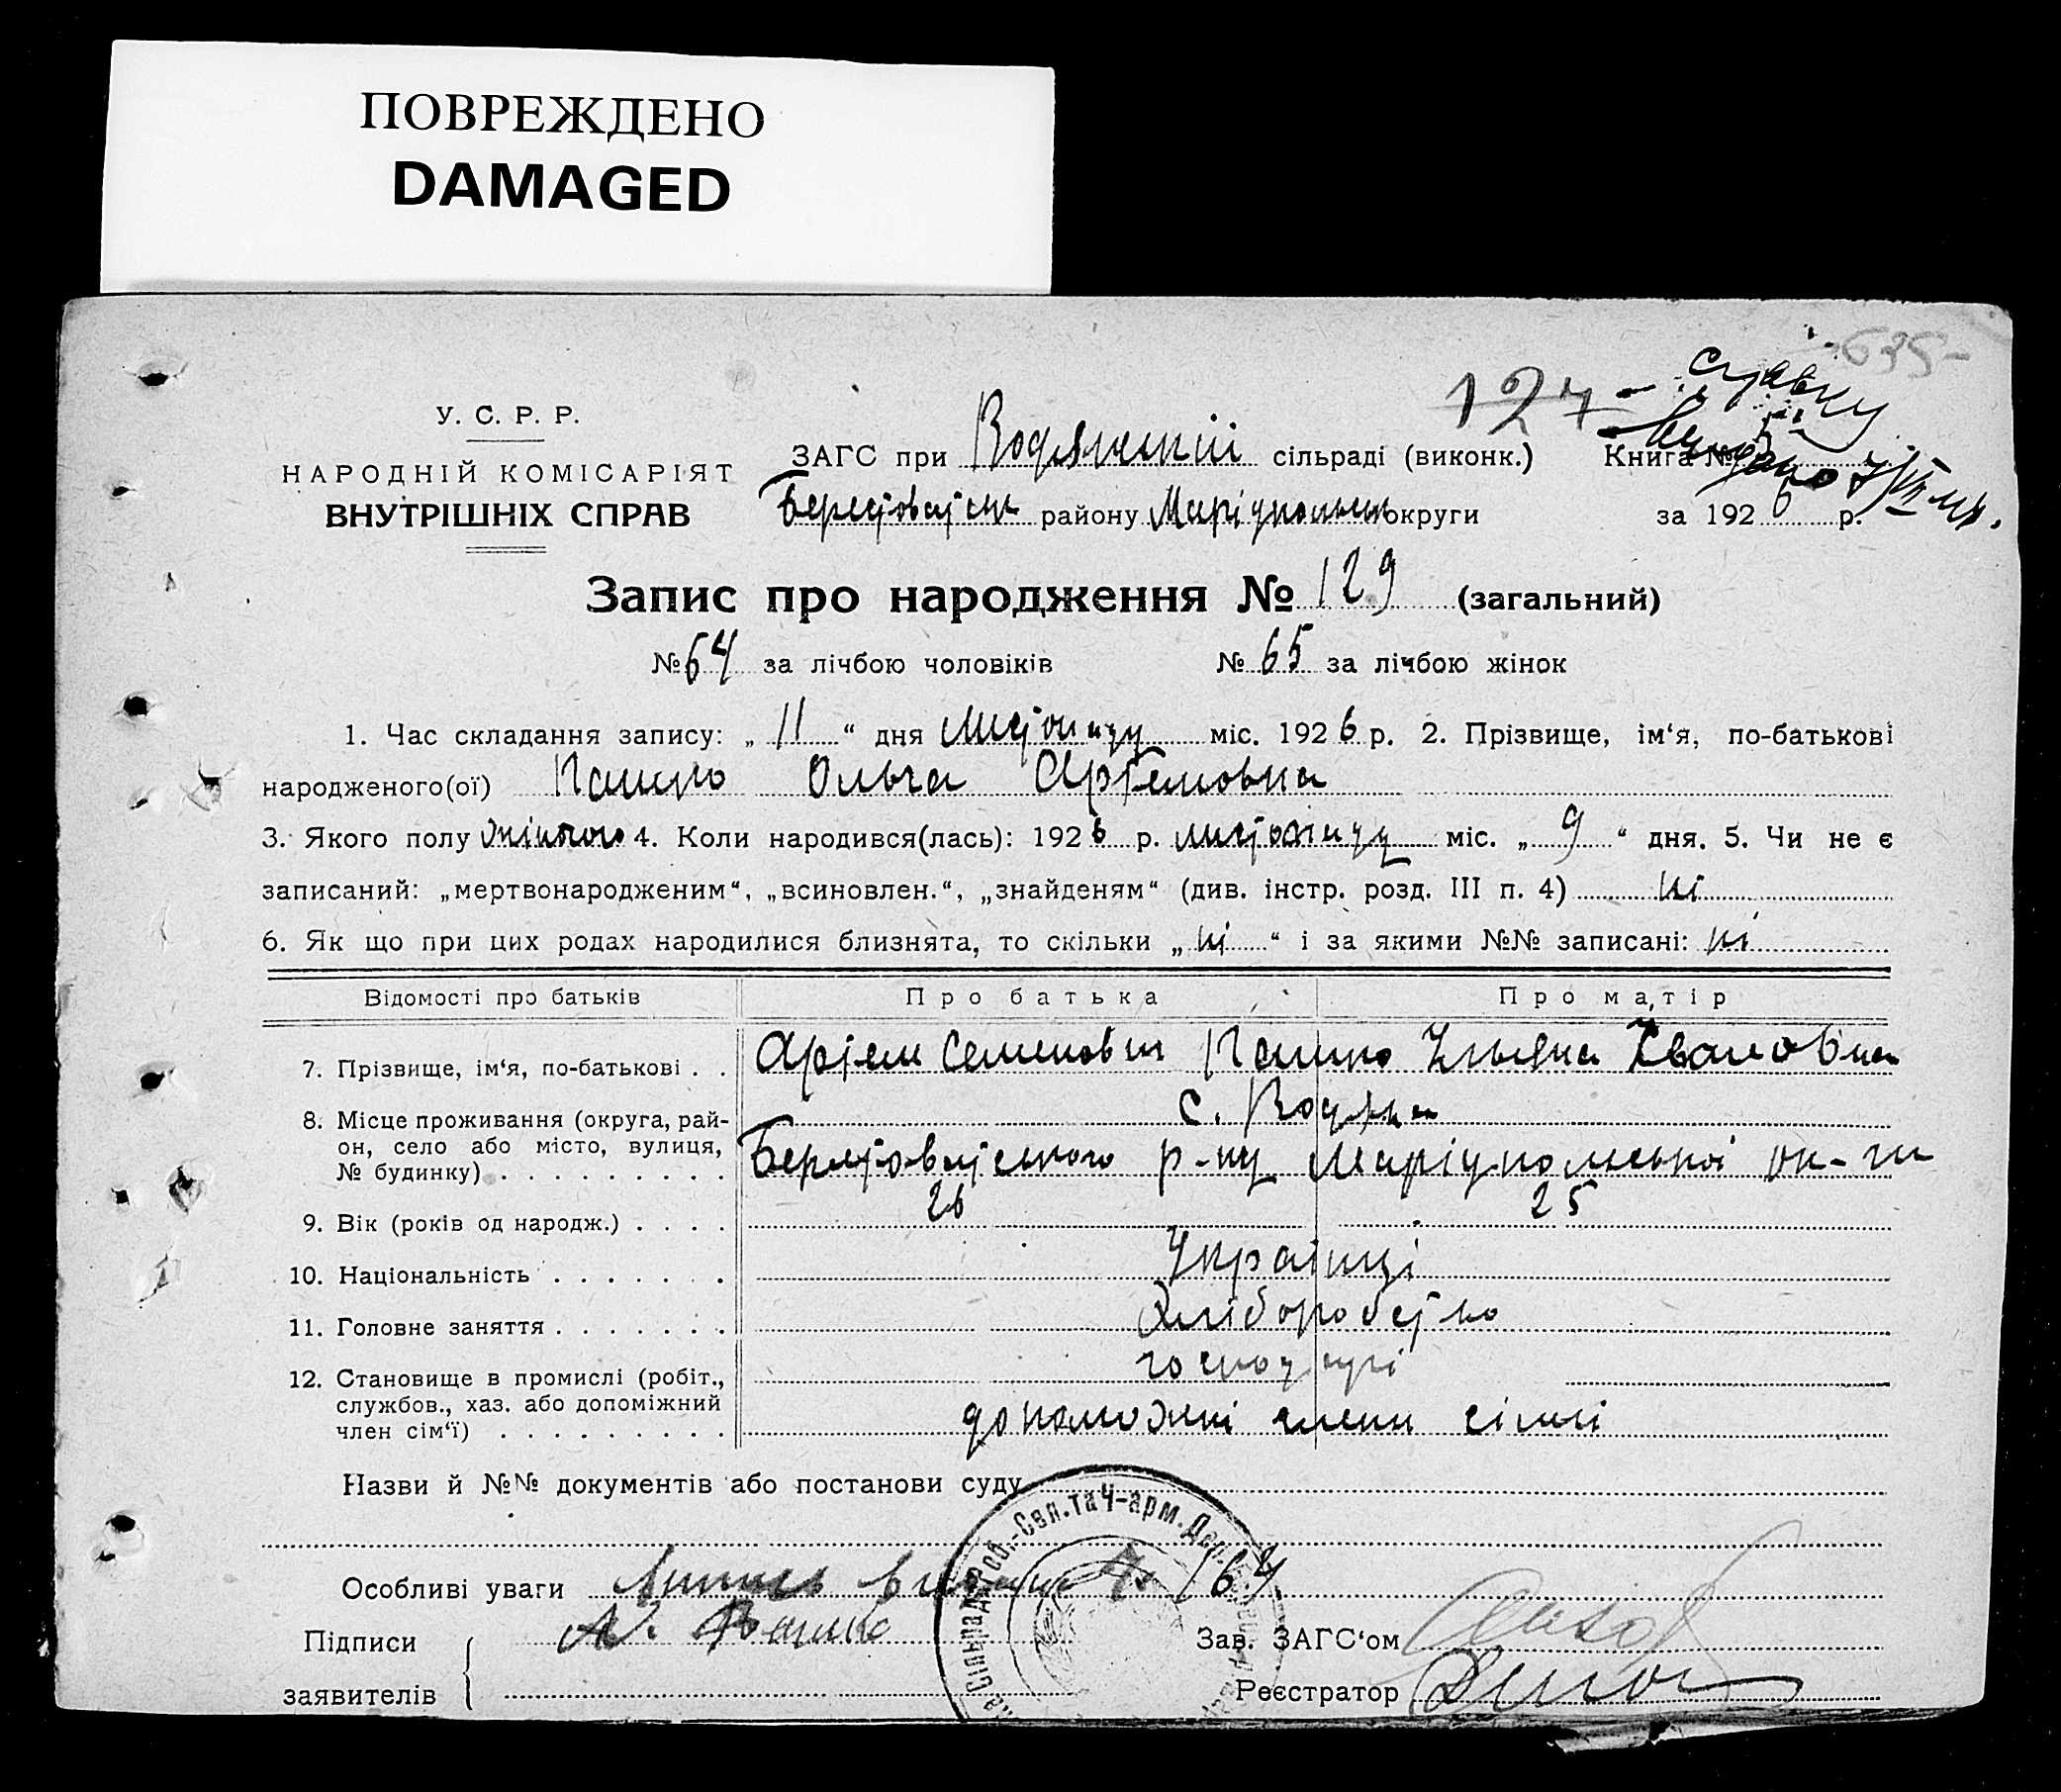 ПОВРЕЖДЕНО
DAMAGED
635-
127 - справку
видано
У. С. Р. Р.
НАРОДНІЙ КОМІСАРІЯТ
ВНУТРІШНІХ СПРАВ
ЗАГС при Водянській сільраді (виконк.) Книга №
району округи за 1926 р.
Запис про народження № 129 (загальний)
№ 64 за лічбою чоловіків № 65 за лічбою жінок
1. Час складання запису: „ 11 “ дня Листопаду міс. 1926 р. 2. Прізвище, ім‘я, по-батькові
народженого(ої) Ольга Артемовна
3. Якого полу жіночого 4. Коли народився(лась): 1926 р. листопаду міс. „ 9 “ дня. 5. Чи не є
записаний: „мертвонародженим“, „всиновлен.“, „знайденям“ (див. інстр. розд. III п. 4) ні
6. Як що при цих родах народилися близнята, то скільки „ ні “ і за якими №№ записані: ні
Відомості про батьків Про батька Про матір
7. Прізвище, ім‘я, по-батькові . . Артем Семенович Ульяна Івановна
8. Місце проживання (округа, рай-
он, село або місто, вулиця,
№ будинку) . . . . . . . . .
с. Водяна
р-ну Маріупольської ок-ги
9. Вік (років од народж.) . . . . 26 25
10. Національність . . . . . . . Українці
11. Головне заняття . . . . . . . Хліборобство
12. Становище в промислі (робіт.,
службов., хаз. або допоміжний
член сім‘ї) . . . . . . . . .
господарі
допоможні члени сімї
Назви й №№ документів або постанови суду
Особливі уваги 164
Підписи
заявителів
Зав. ЗАГС‘ом
Реєстратор
Роб.-Свл. та Ч-арм. Деп.